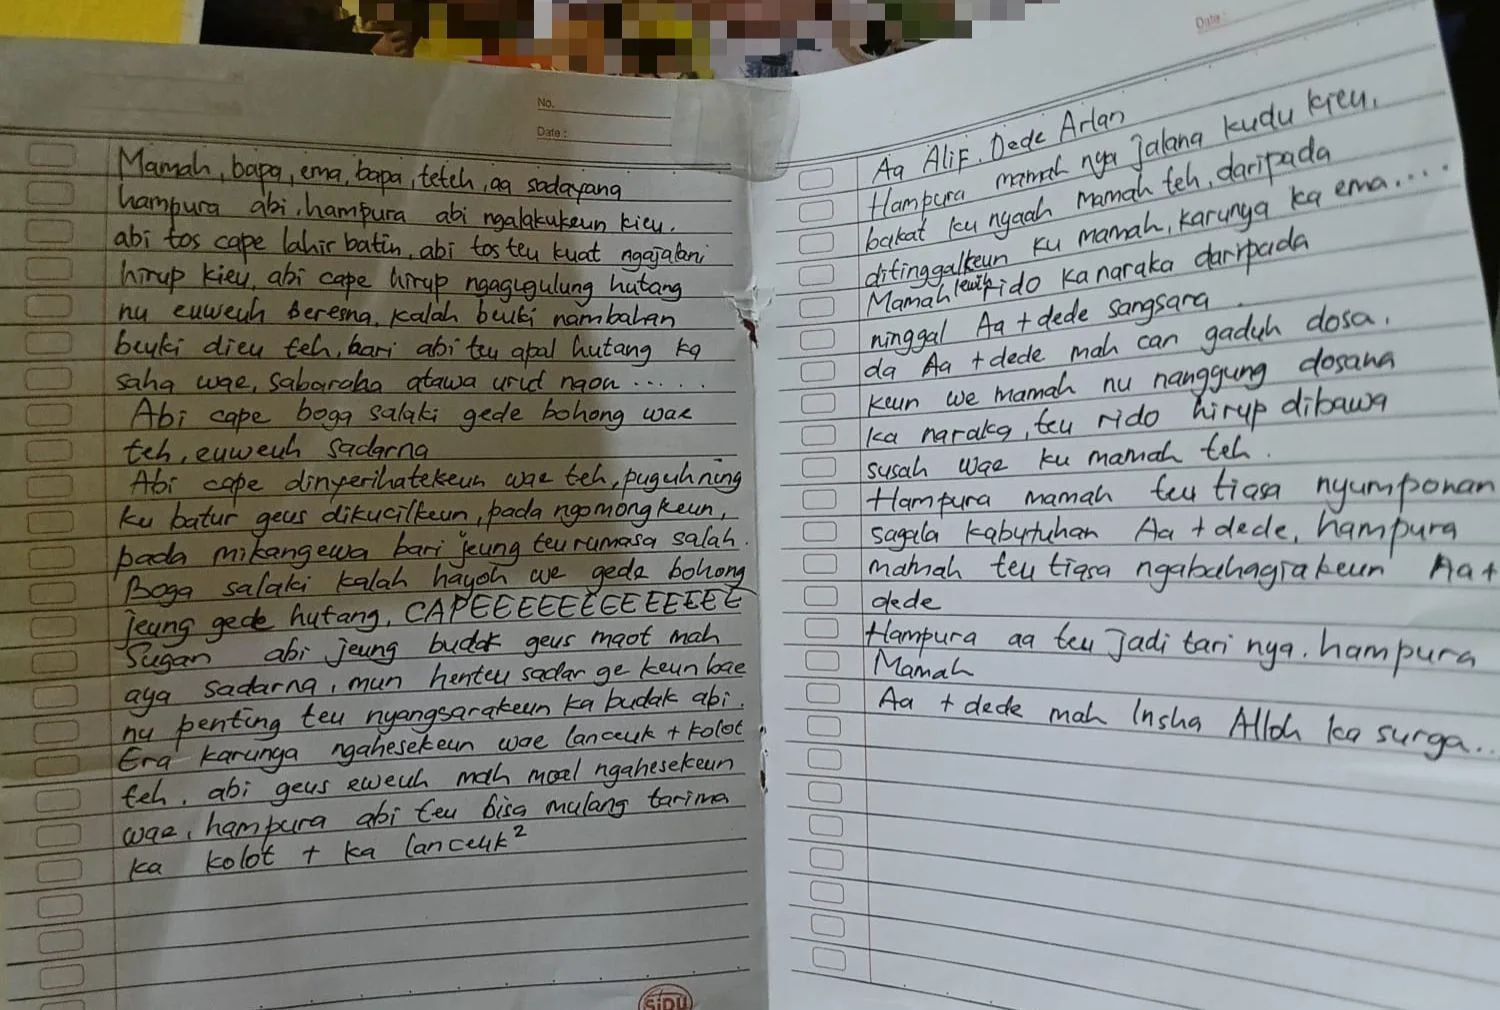 No.
Date :
Mamah, bapa, ema, bapa, teteh, aa sadayana
hampura abi, hampura abi ngalakukeun kieu.
abi tos cape lahir batin, abi tos teu kuat ngajalani
hirup kieu, abi cape hirup ngagugulung hutang
nu euweuh beresna, kalah beuki nambahan
beuki dieu teh, bari abi teu apal hutang ka
saha wae, sabaraha atawa urut naon ......
Abi cape boga salaki gede bohong wae
teh, euweuh sadarna
Abi cape dinyerihatekeun wae teh, puguhning
ku batur geus dikucilkeun, pada ngomongkeun,
pada mikangewa bari jeung teu rumasa salah.
Boga salaki kalah hayoh we gede bohong
jeung gede hutang, CAPEEEEEEEEEEEEEE
Sugan abi jeung budak geus maot mah
aya sadarna, mun henteu sadar ge keun bae
nu penting teu nyangsarakeun ka budak abi.
Era karunya ngahesekeun wae lanceuk + kolot
teh, abi geus eweuh mah moal ngahesekeun
wae, hampura abi teu bisa mulang tarima
ka kolot + ka lanceuk²
SiDU
Date :
Aa Alif. Dede Arlan
Hampura mamah nya jalana kudu kieu.
bakat ku nyaah mamah teh, daripada
ditinggalkeun ku mamah, karunya ka ema....
Mamah lewih rido ka naraka daripada
ninggal Aa + dede sangsara.
da Aa + dede mah can gaduh dosa.
keun we mamah nu nanggung dosana
ka naraka, teu rido hirup dibawa
susah wae ku mamah teh.
Hampura mamah teu tiasa nyumponan
sagala kabutuhan Aa + dede, hampura
mamah teu tiasa ngabahagiakeun Aa +
dede
Hampura aa teu jadi tari nya. hampura
Mamah
Aa + dede mah Insha Alloh ka surga..